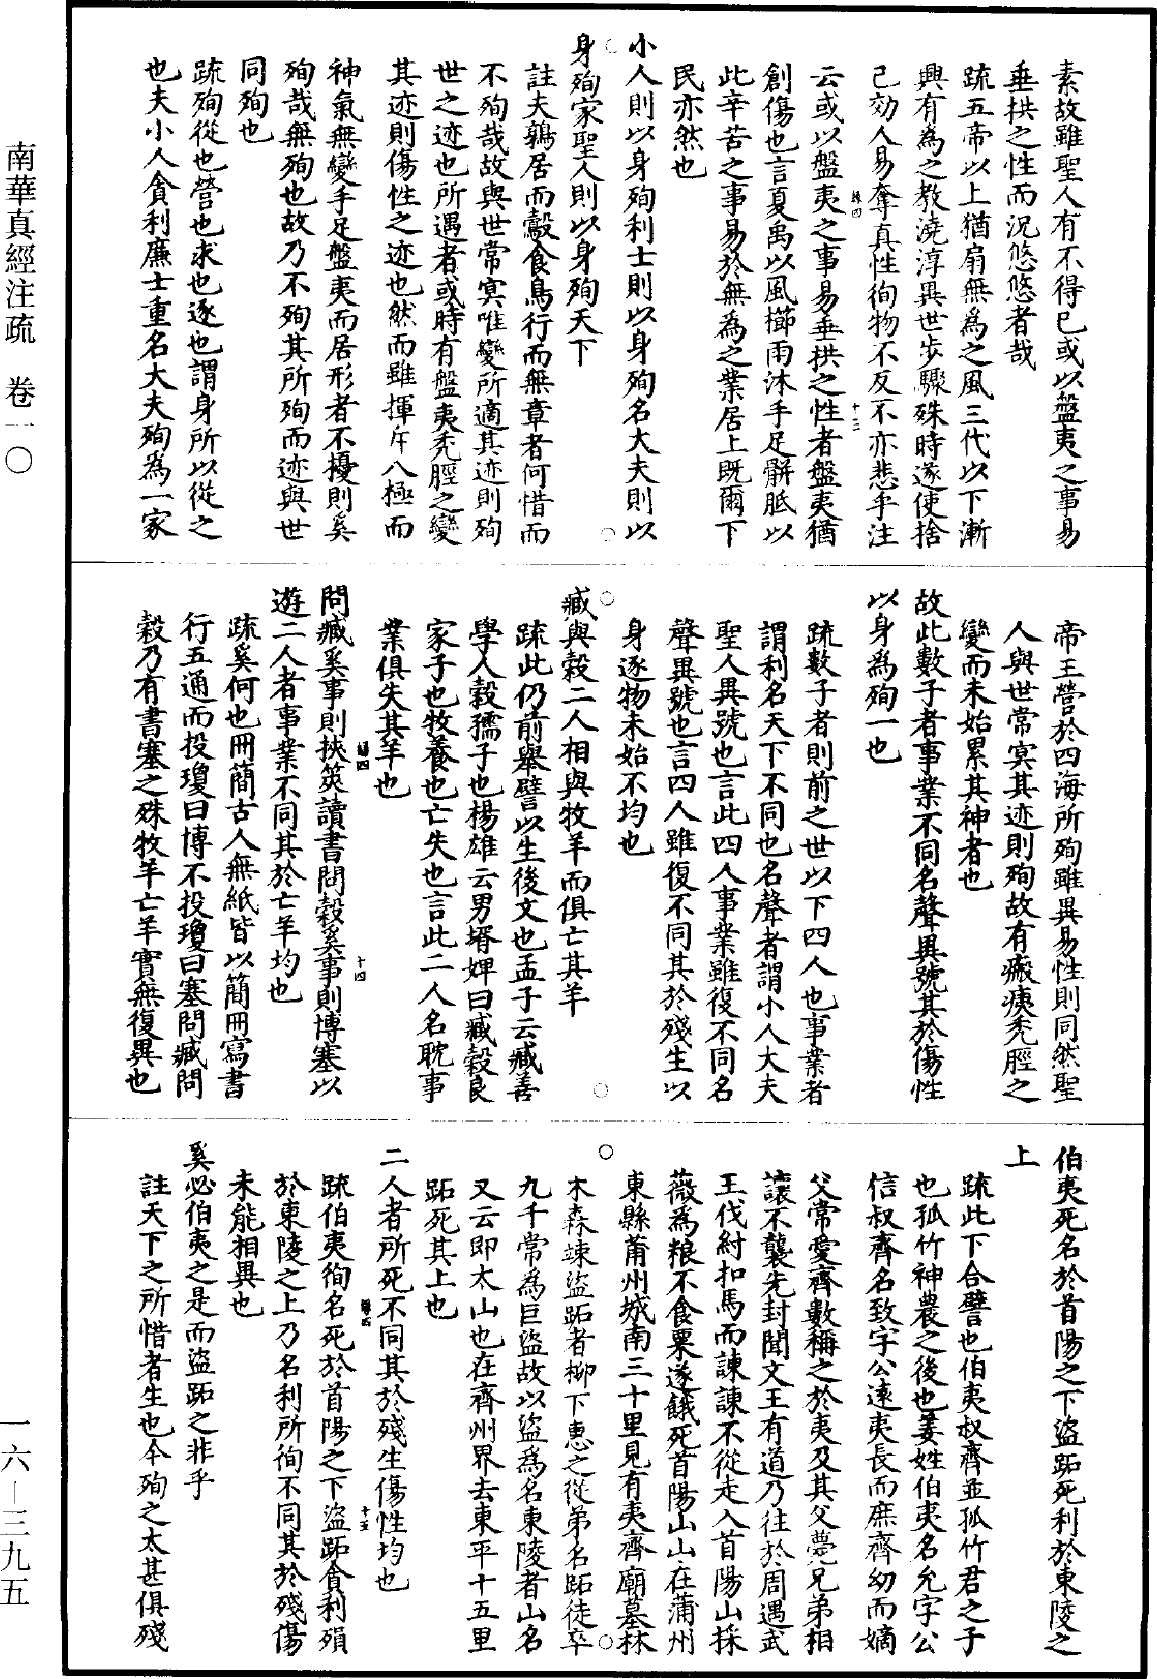 南華真經注疏　卷一〇
素故雖聖人有不得已或以盤夷之事易
垂拱之性而況悠悠者哉
疏五帝以上猶扇無為之風三代以下漸
興有為之教澆淳異世步驟殊時遂使捨
己効人易奪真性徇物不反不亦悲乎注
云或以盤夷之事易垂拱之性者盤夷猶
創傷也言夏禹以風櫛雨沐手足胼胝以
此辛苦之事易於無為之業居上既爾下
民亦然也
小人則以身殉利士則以身殉名大夫則以
身殉家聖人則以身殉天下
註夫鶉居而鷇食鳥行而無章者何惜而
不殉哉故與世常冥唯變所適其迹則殉
世之迹也所遇者或時有盤夷禿脛之變
其迹則傷性之迹也然而雖揮斥八極而
神氣無變手足盤夷而居形者不擾則奚
殉哉無殉也故乃不殉其所殉而迹與世
同殉也
疏殉從也營也求也逐也謂身所以從之
也夫小人貪利廉士重名大夫殉為一家
帝王營於四海所殉雖異易性則同然聖
人與世常冥其迹則殉故有瘢痍禿脛之
變而未始累其神者也
故此數子者事業不同名聲異號其於傷性
以身為殉一也
疏數子者則前之世以下四人也事業者
謂利名天下不同也名聲者謂小人大夫
聖人異號也言此四人事業雖復不同名
聲異號也言四人雖復不同其於殘生以
身逐物未始不均也
臧與穀二人相與牧羊而俱亡其羊
疏此仍前舉譬以生後文也孟子云臧善
學人穀孺子也楊雄云男壻婢曰臧穀良
家子也牧養也亡失也言此二人名耽事
業俱失其羊也
問臧奚事則挾筴讀書問穀奚事則博塞以
遊二人者事業不同其於亡羊均也
疏奚何也冊簡古人無紙皆以簡冊寫書
行五通而投瓊曰博不投瓊曰塞問臧問
穀乃有書塞之殊牧羊亡羊實無復異也
伯夷死名於首陽之下盜跖死利於東陵之
上
疏此下合譬也伯夷叔齊並孤竹君之子
也孤竹神農之後也姜姓伯夷名允字公
信叔齊名致字公遠夷長而庶齊幼而嫡
父常愛齊數稱之於夷及其父薨兄弟相
讓不襲先封聞文王有道乃往於周遇武
王伐紂扣馬而諫諫不從走入首陽山採
薇為粮不食粟遂餓死首陽山山在蒲州
東縣蒲州城南三十里見有夷齊廟墓林
木森竦盜跖者柳下惠之從弟名跖徒卒
九千常為巨盜故以盜為名東陵者山名
又云即太山也在齊州界去東平十五里
跖死其上也
二人者所死不同其於殘生傷性均也
疏伯夷徇名死於首陽之下盜跖貪利殞
於東陵之上乃名利所徇不同其於殘傷
未能相異也
奚必伯夷之是而盜跖之非乎
註天下之所惜者生也今殉之太甚俱殘
一六—三九五